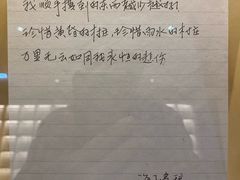 我顺手摸到的东西越少越好
珍惜黄昏的村庄，珍惜雨水的村庄
万里无云如同我永恒的悲伤